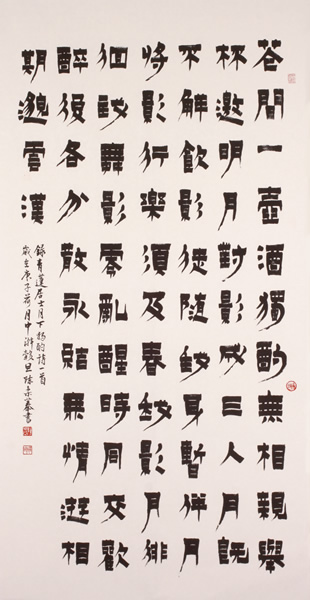 花間一壺酒獨酌無相親舉
杯邀明月對影成三人月既
不解飲影徒隨我身暫伴月
將影行樂須及春我歌月徘
徊我舞影零亂醒時同交歡
醉後各分散永結無情遊相
期邈雲漢
錄青蓮居士月下獨酌詩一首
歲在庚子荷月中澣穀旦書